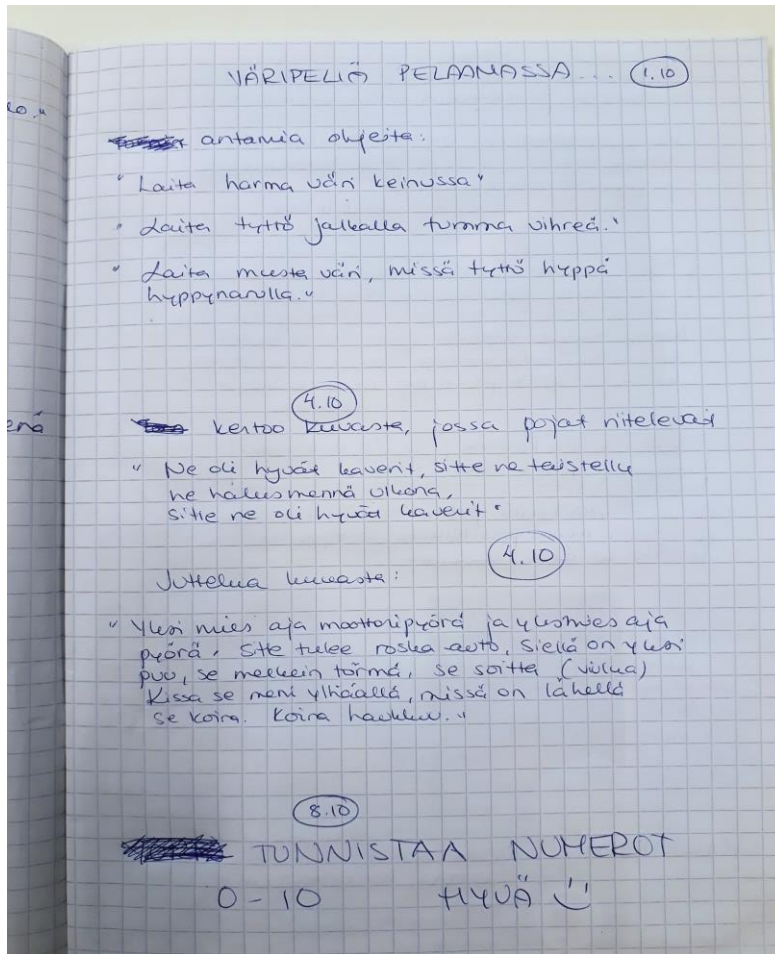 VÄRIPELIÄ PELAAMASSA... 1.10
antamia ohjeita:
"Laita harma väri keinussa"
"Laita tyttö jalkalla tumma vihreä."
"Laita musta väri, missä tyttö hyppä
hyppynarulla."
4.10
kertoo kuvasta, jossa pojat riitelevät
"Ne oli hyvät kaverit, sitte ne taistellu
ne halus mennä ulkona,
sitte ne oli hyvät kaverit"
4.10
Juttelua kuvasta:
"Yksi mies aja moottoripyörä ja yksi mies aja
pyörä. Sitte tulee roska auto, siellä on yksi
puu, se melkein törmä, se soitta (viulua)
Kissa se meni ylhäällä, missä on lähellä
se koira. Koira haukku."
8.10
TUNNISTAA NUMEROT
0-10 HYVÄ